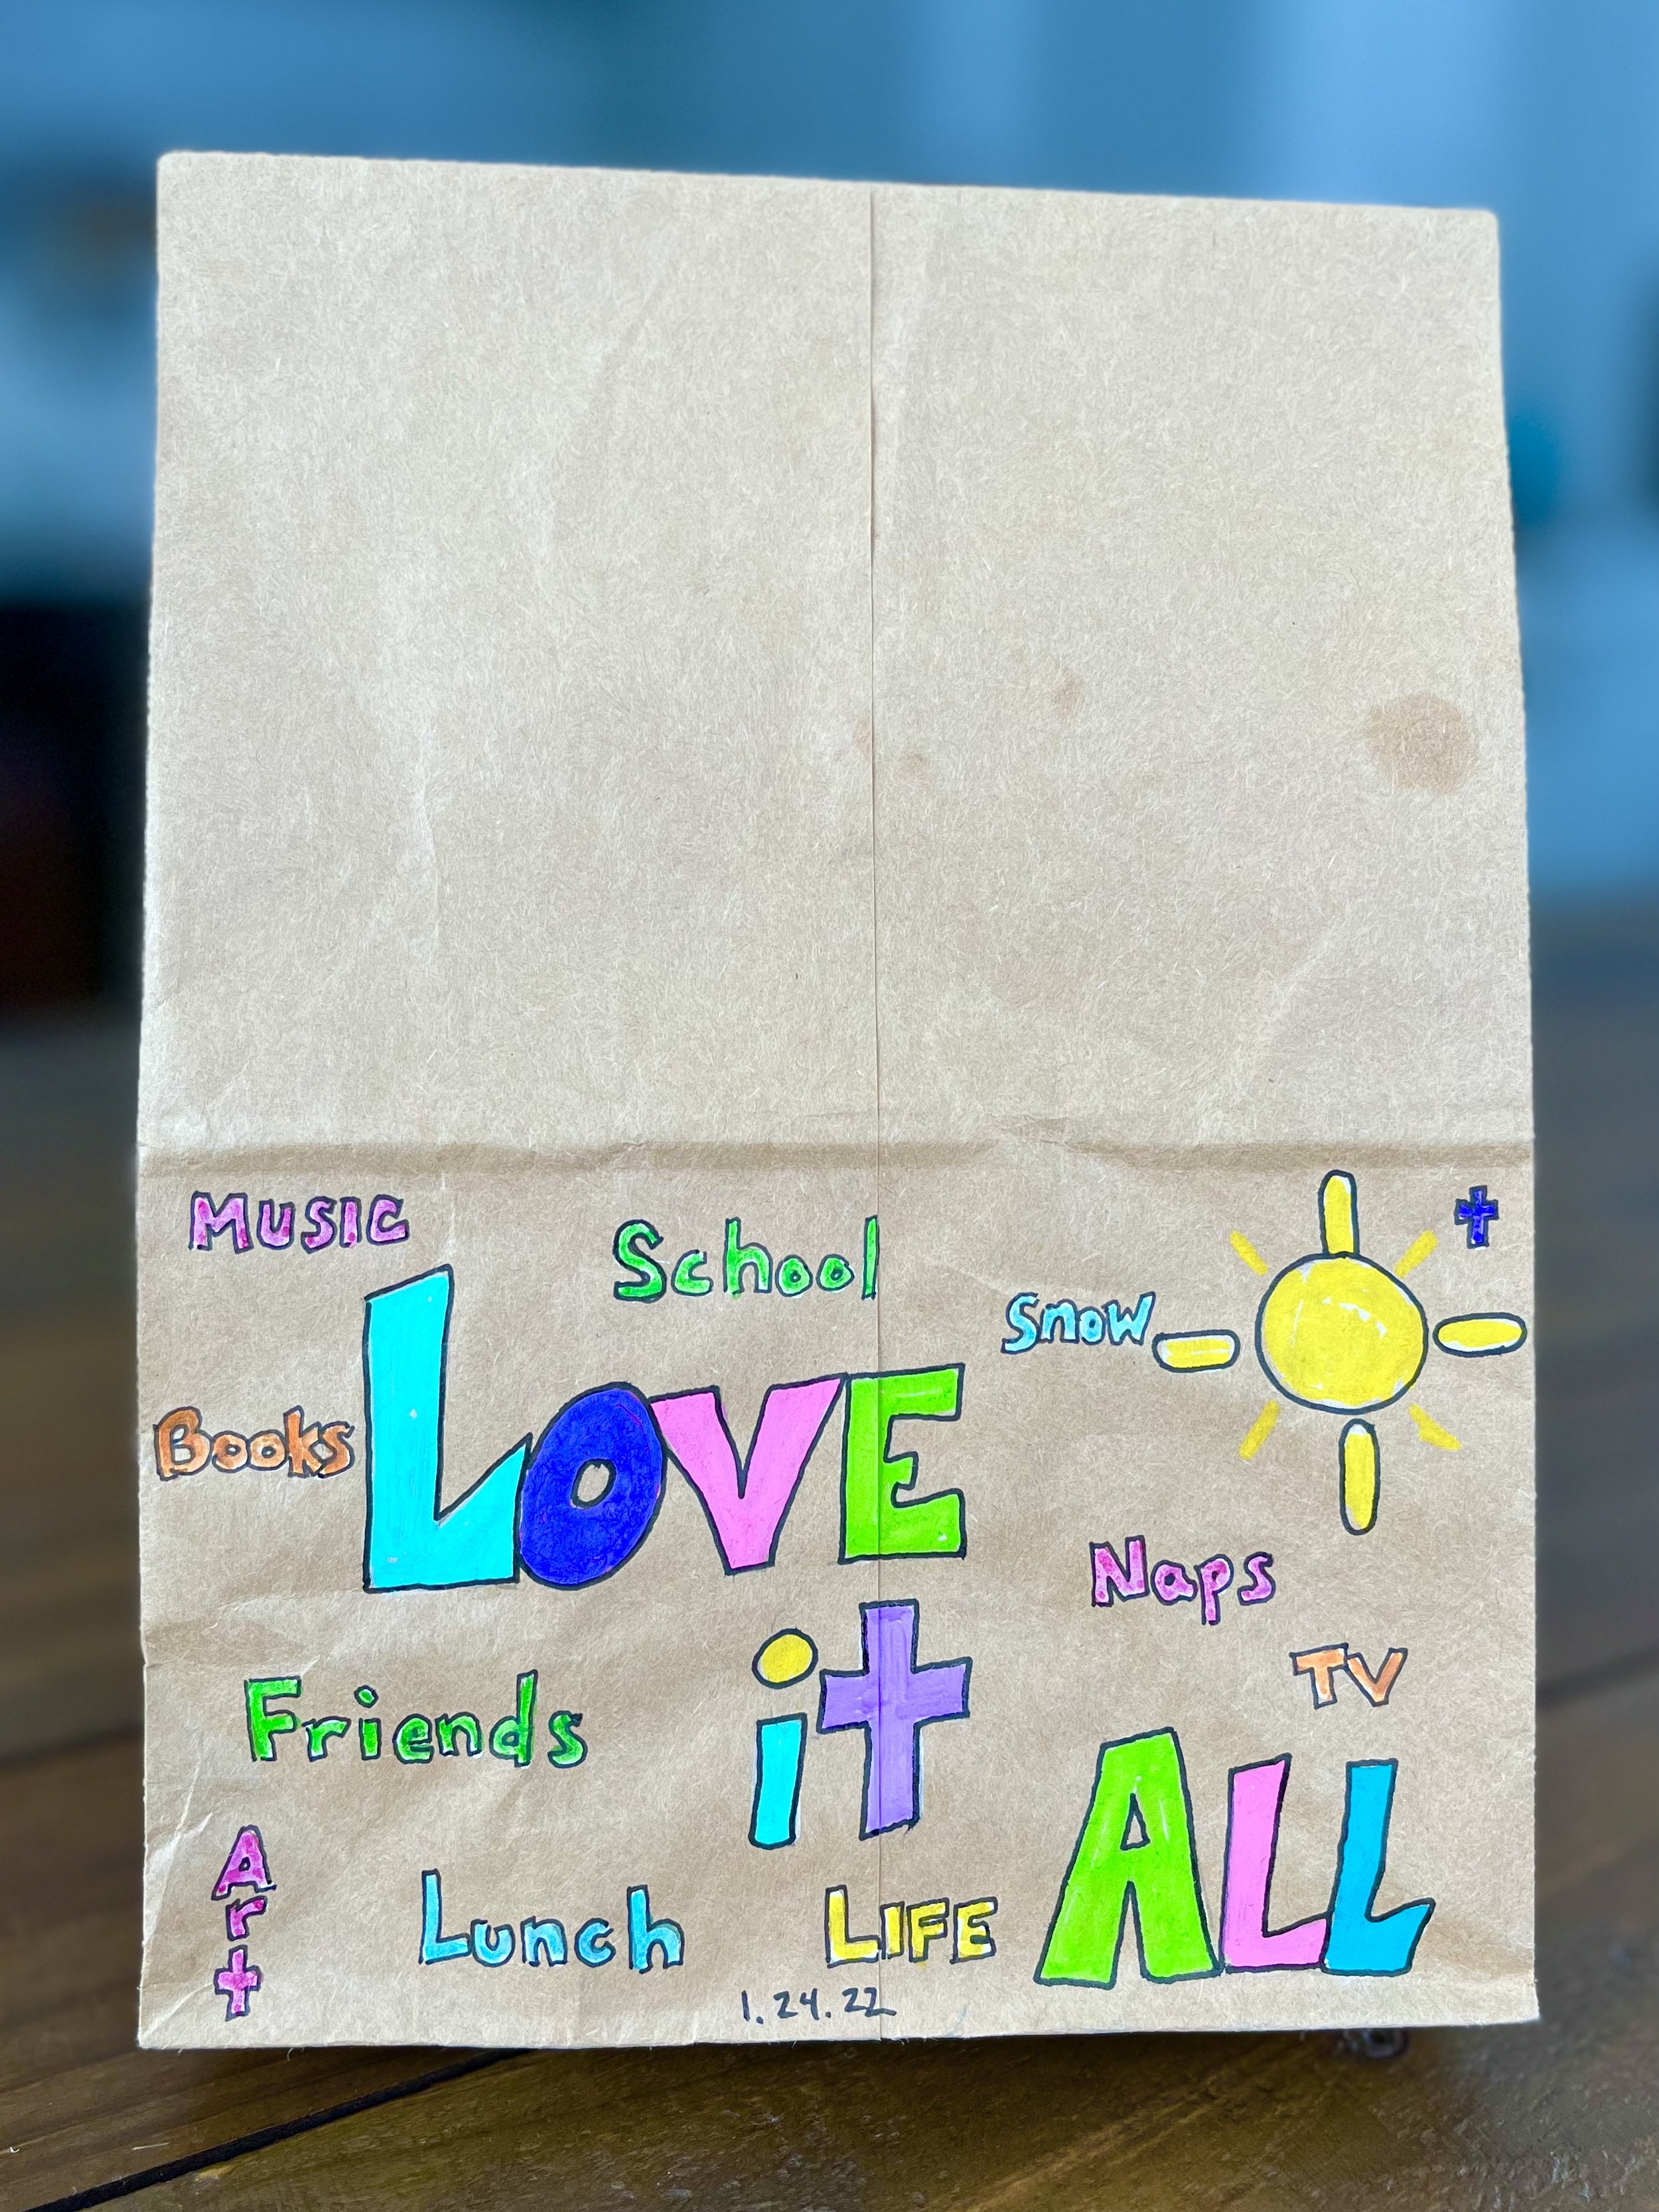 Music
School
Snow
Books
Love
Naps
it
TV
Friends
ALL
Art
Lunch
LIFE
1.24.22